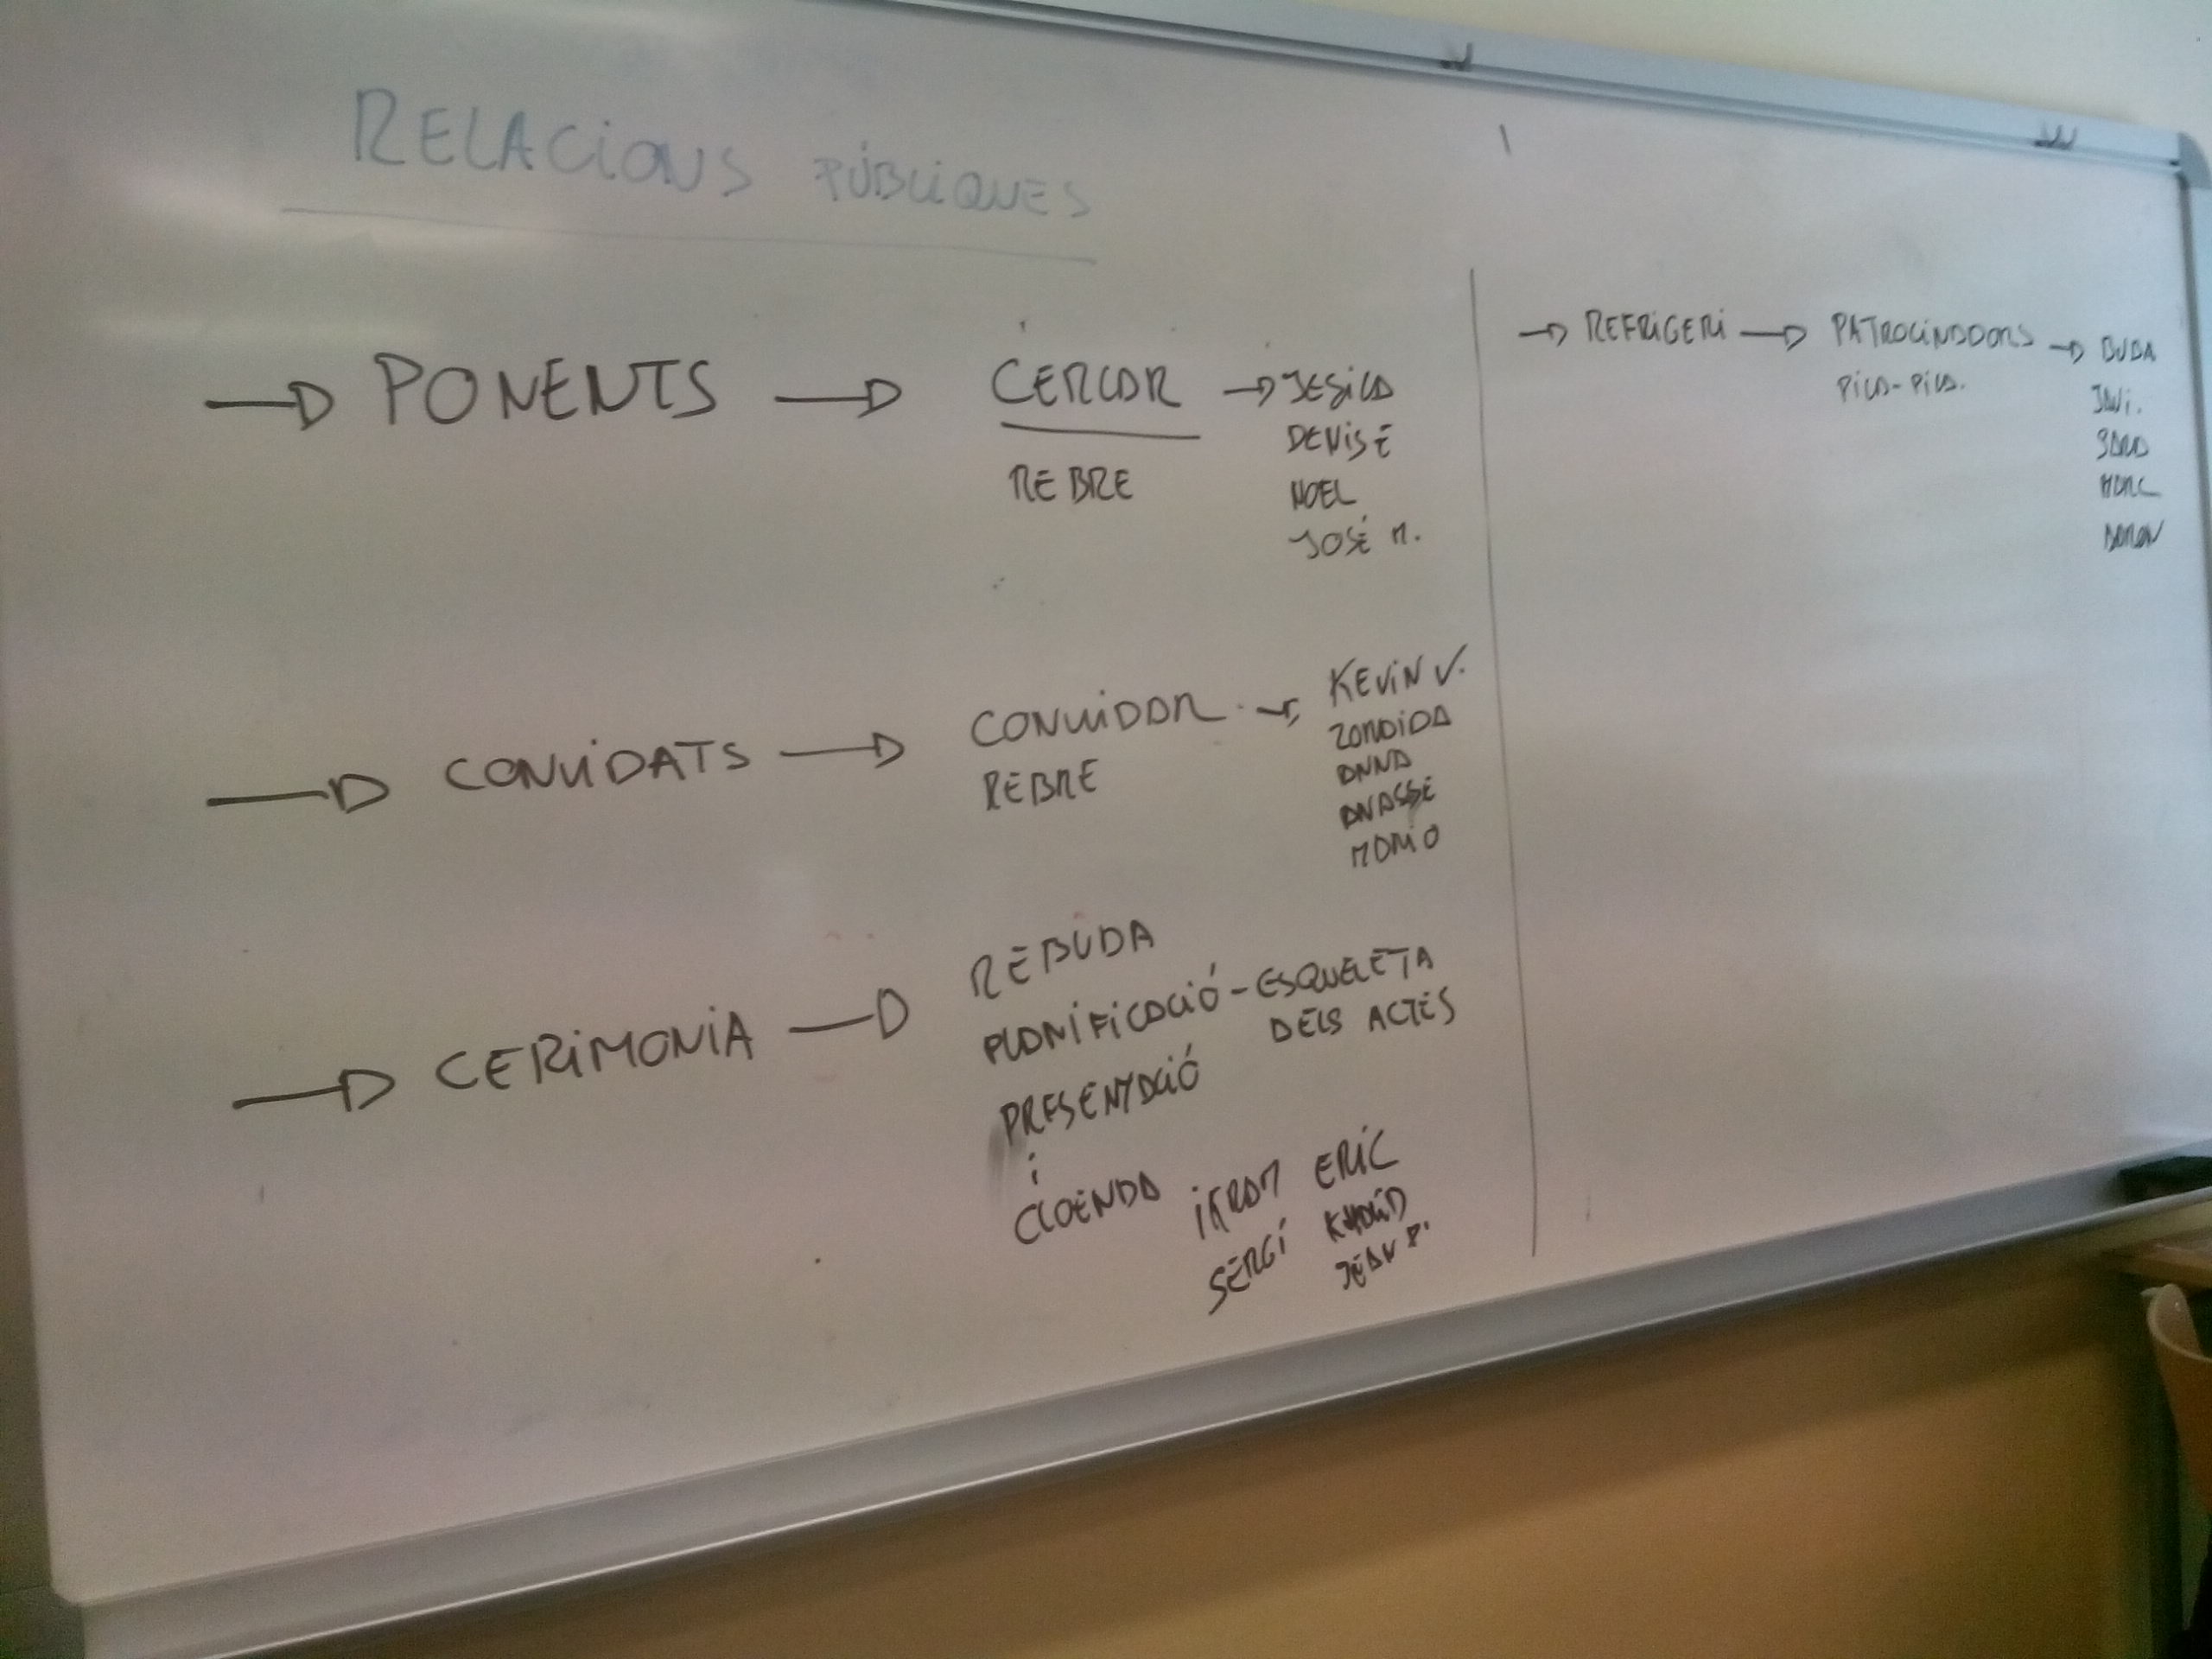 RELACIONS PÚBLIQUES
PONENTS
CERCAR
REBRE
JESICA
DENISE
NOEL
JOSÉ M.
CONVIDATS
CONVIDAR
REBRE
KEVIN V.
ZORAIDA
ANNA
ANASSE
MARIO
CERIMONIA
REBUDA
PLANIFICACIÓ - ESQUELETA
DELS ACTES
PRESENTACIÓ
i
CLOENDA
IKRAM ERIC
SERGI KHALID
JEAN P.
REFRIGERI
PATROCINADORS
PICA-PICA.
BUBA
JAVI.
SARA
MARC